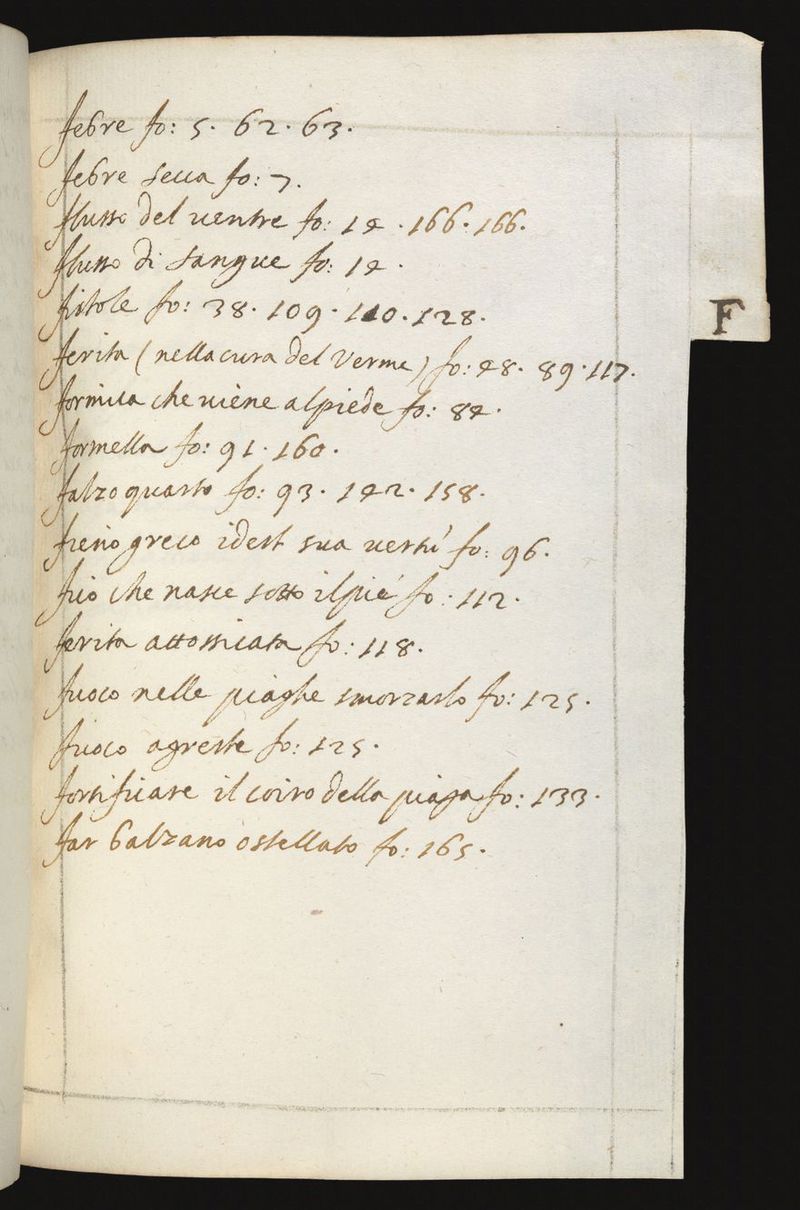 febre fo: 5. 62. 63.
febre secca fo: 7.
flusso del uentre fo: 14. 166. 166.
flusso di sangue fo: 14.
fistole fo: 38. 109. 110. 128.
F
ferita (nella cura del Verme) fo: 48. 89. 117.
formica che uiene al piede fo: 84.
formella fo: 91. 160.
falzo quarto fo: 93. 142. 158.
fieno greco idest sua uertù fo: 96.
fico che nasce sotto il piè fo: 112.
ferita attossicata fo: 118.
fuoco nelle piaghe smorzarlo fo: 125.
fuoco agreste fo: 125.
fortificare il coiro della piaga fo: 133.
far balzano o stellato fo: 165.